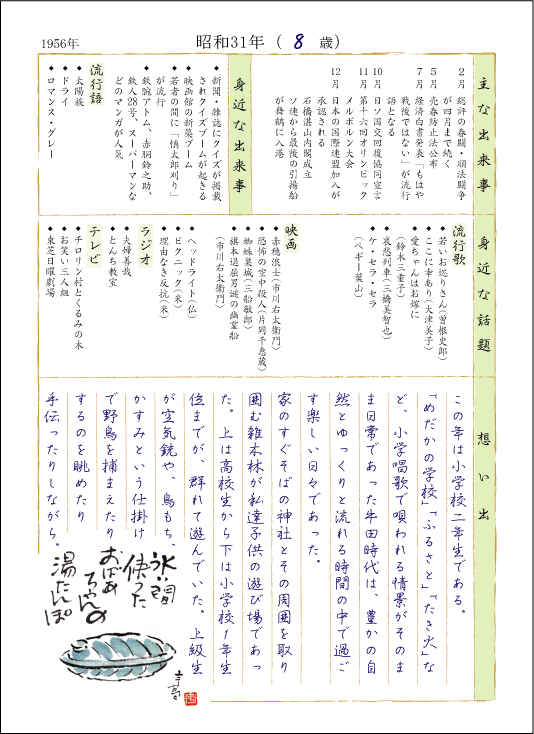 1956年
昭和31年（ 8 歳）
主な出来事
2月 総評の春闘、順法闘争
が四月まで続く
5月 売春防止法公布
7月 経済白書発表「もはや
戦後ではない」が流行
語となる
10月 日ソ国交回復協同宣言
11月 第十六回オリンピック
メルボルン大会
12月 日本の国際連盟加入が
承認される
石橋湛山内閣成立
ソ連から最後の引揚船
が舞鶴に入港
身近な出来事
◆新聞・雑誌にクイズが掲載
されクイズブームが起きる
◆映画館の新築ブーム
◆若者の間に「慎太郎刈り」
が流行
◆鉄腕アトム、赤胴鈴之助、
鉄人28号、スーパーマンな
どのマンガが人気
流行語
◆太陽族
◆ドライ
◆ロマンス・グレー
身近な話題
流行歌
◆若いお巡りさん（曽根史郎）
◆ここに幸あり（大津美子）
◆愛ちゃんはお嫁に
（鈴木三重子）
◆哀愁列車（三橋美智也）
◆ケ・セラ・セラ
（ペギー葉山）
映画
◆赤穂浪士（市川右太衛門）
◆恐怖の空中殺人（片岡千恵蔵）
◆蜘蛛巣城（三船敏郎）
◆旗本退屈男謎の幽霊船
（市川右太衛門）
◆ヘッドライト（仏）
◆ピクニック（米）
◆理由なき反抗（米）
ラジオ
◆夫婦善哉
◆とんち教室
テレビ
◆チロリン村とくるみの木
◆お笑い三人組
◆東芝日曜劇場
想い出
この年は小学校二年生である。
「めだかの学校」「ふるさと」「たき火」な
ど、小学唱歌で唄われる情景がそのま
ま日常であった牛田時代は、豊かの自
然とゆっくりと流れる時間の中で過ご
す楽しい日々であった。
家のすぐそばの神社とその周囲を取り
囲む雑木林が私達子供の遊び場であっ
た。上は高校生から下は小学校1年生
位までが、群れて遊んでいた。上級生
が空気銃や、鳥もち、
かすみという仕掛け
で野鳥を捕まえたり
するのを眺めたり
手伝ったりしながら。
永い間
使った
おばあ
ちゃんの
湯たんぽ